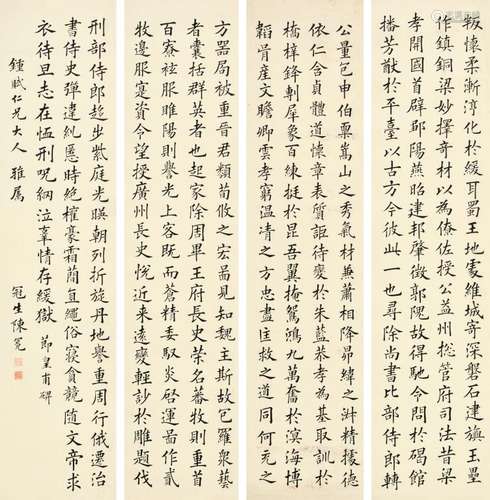 叛懷柔漸淳化於緩耳王地處維城深磐石建旟玉壘
作鎮銅梁妙擇奇材以為僚佐授公益州総管府司法昔梁
孝開國首辟鄒陽燕昭建邦肇徵郭隗故得馳令問於碣館
播芳猷於平臺以古方今彼此一也尋除尚書比部侍郎轉
公量包申伯稟嵩山之秀氣材兼蕭相降昴緯之淑精據德
依仁含貞體道懷章表質詎待於朱藍恭孝為基取訓於
橋梓鋒剸犀象百練挺於昆吾翼掩鴛鴻九萬奮於溟海博
韜骨產文贍卿雲孝窮溫凊之方忠盡匡救之道同何充之
方器局被重晉君類荀攸之宏圖見知魏主斯故包羅眾藝
者囊括群英者也起家除周畢王府長史榮名蕃牧則重首
百寮袨服睢陽則譽光上客既而蒼精委馭炎啟運圖作貳
牧邊服寔資令望授廣州長史悅近來遠變輕訬於雕題伐
刑部侍郎趍步紫庭光暎朝列折旋丹地譽重周行俄遷治
書侍史彈違糺慝時絕權豪霜簡直繩俗寢貪競隨文帝求
衣待旦志在恤刑呪網泣辜情存緩獄 節皇甫碑
鍾賦仁兄大人 雅屬 冠生陳冕